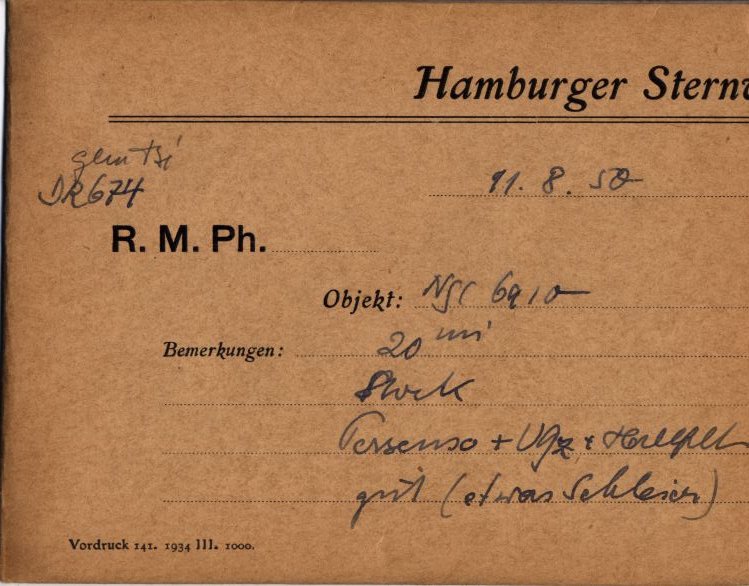 Hamburger Sternw
DR674
11. 8. 50
R. M. Ph.
Objekt: NGC 6910
Bemerkungen: 20 mi
gut (etwas Schleier)
Vordruck 141. 1934 III. 1000.